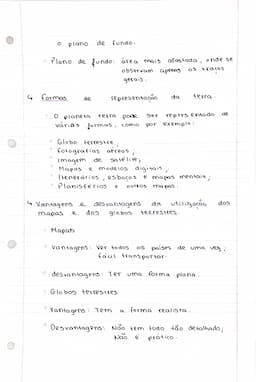 o plano de fundo.
Plano de fundo: área mais afastada, onde se
observam apenas os traços
gerais.
↳ Formas de representação da terra.
O planeta terra pode ser representado de
várias formas, como por exemplo:
Globo terrestre;
Fotografias aéreas;
Imagem de satélite;
Mapas e modelos digitais;
Itenerários, esboços e mapas mentais;
Planisférios e outros mapas.
↳ Vantagens e desvantagens da utilização dos
mapas e dos globos terrestres.
Mapas
Vantagens: Ver todos os países de uma vez;
fácil transportar.
desvantagens: Ter uma forma plana.
Globos terrestres
Vantagens: Tem a forma realista.
Desvantagens: Não tem tudo tão detalhado;
Não é prático.